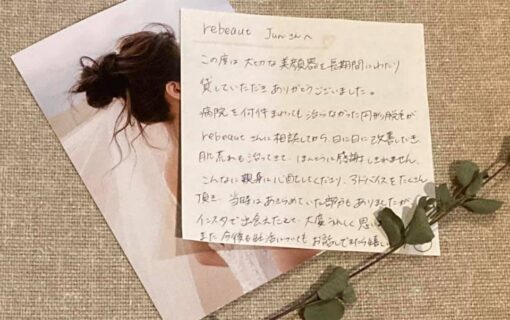 rebeaut Junさんへ
この度は大切な美顔器を長期間にわたり
貸していただきありがとうございました。
病院を何件まわっても治らなかった円形脱毛が
rebeautさんに相談してから、日に日に改善していき
肌荒れも治ってきて、ほんとうに感謝しきれません。
こんなに親身に心配してくださり、アドバイスをたくさん
頂き、当時はあきらめていた部分もありましたが
インスタで出会えたことで、大変うれしく思い
また今後も妊活についても お話しできたら嬉し